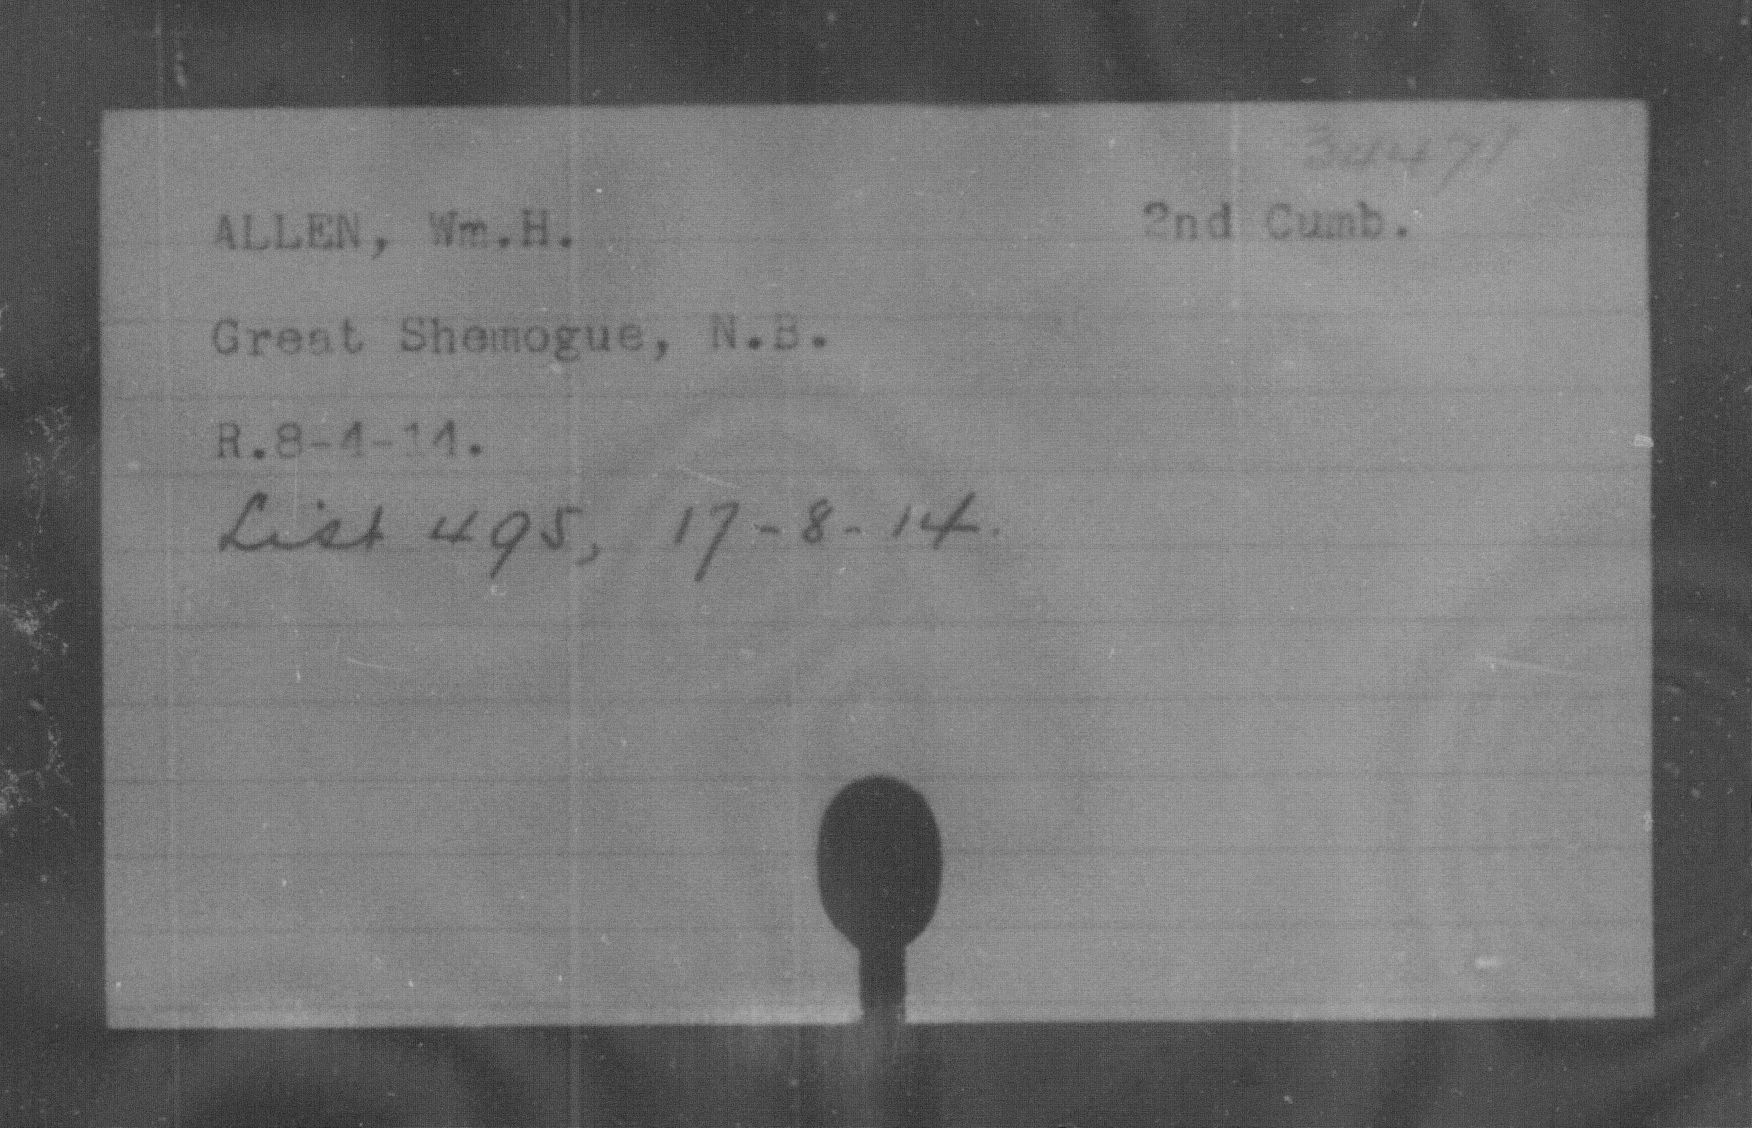 ALLEN, Wm.H.
2nd Cumb.
Great Shemogue, N.B.
R.8-4-14.
List 495, 17-8-14.